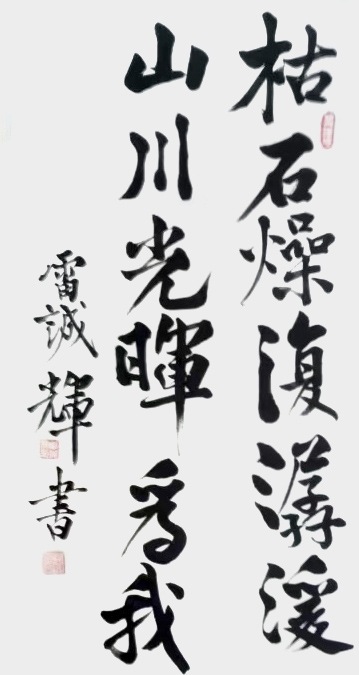 枯石燥復潺湲
山川光暉為我
雷誠輝書